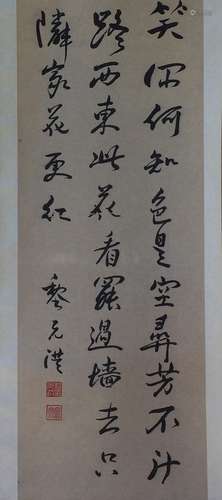 笑渠何知色是空尋芳不計
路西東此花看罷過墻去只
隣家花更紅
黎元洪